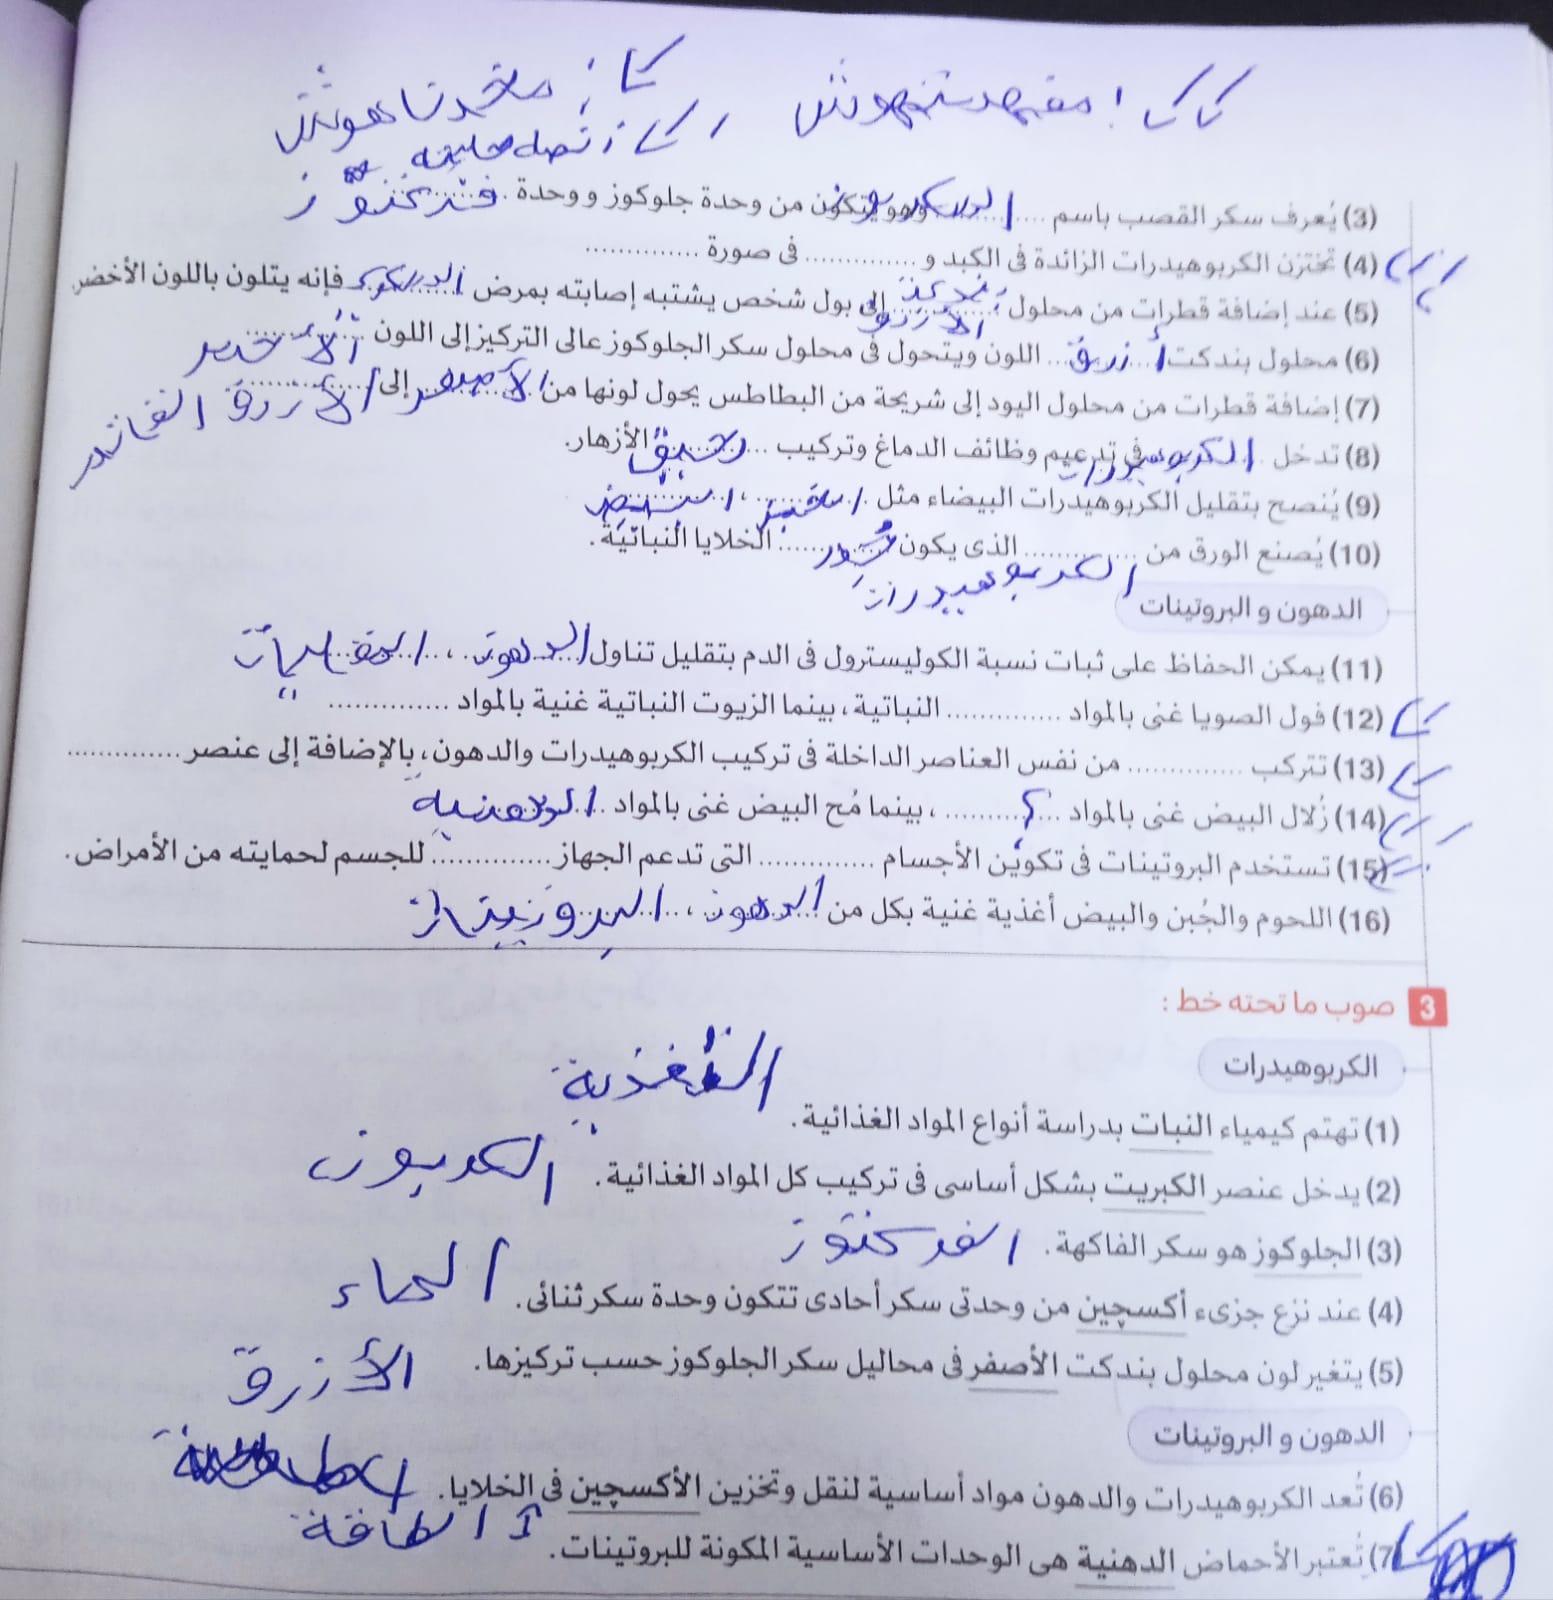 (3) يُعرف سكر القصب باسم .... السكروز وهو يتكون من وحدة جلوكوز ووحدة فركتوز
(4) تختزن الكربوهيدرات الزائدة فى الكبد و .............. فى صورة ..............
(5) عند إضافة قطرات من محلول بندكت الأزرق إلى بول شخص يشتبه إصابته بمرض السكر فإنه يتلون باللون الأخضر.
(6) محلول بندكت أزرق اللون ويتحول فى محلول سكر الجلوكوز عالى التركيز إلى اللون الأخضر
(7) إضافة قطرات من محلول اليود إلى شريحة من البطاطس يحول لونها من الأصفر إلى الأزرق
(8) تدخل الكربوهيدرات فى تدعيم وظائف الدماغ وتركيب رحيق الأزهار.
(9) يُنصح بتقليل الكربوهيدرات البيضاء مثل الخبز ،
(10) يُصنع الورق من .............. الذى يكون جدر الخلايا النباتية.
الكربوهيدرات
الدهون و البروتينات
(11) يمكن الحفاظ على ثبات نسبة الكوليسترول فى الدم بتقليل تناول الدهون ، المقليات
(12) فول الصويا غنى بالمواد .............. النباتية، بينما الزيوت النباتية غنية بالمواد ..............
(13) تتركب .............. من نفس العناصر الداخلة فى تركيب الكربوهيدرات والدهون، بالإضافة إلى عنصر ..............
(14) زُلال البيض غنى بالمواد ..؟.......... ، بينما مُح البيض غنى بالمواد الدهنية
(15) تستخدم البروتينات فى تكوين الأجسام .............. التى تدعم الجهاز .............. للجسم لحمايته من الأمراض.
(16) اللحوم والجُبن والبيض أغذية غنية بكل من الدهون ، البروتينات
3 صوب ما تحته خط :
الكربوهيدرات
التغذية
(1) تهتم كيمياء النبات بدراسة أنواع المواد الغذائية.
(2) يدخل عنصر الكبريت بشكل أساسى فى تركيب كل المواد الغذائية. الكربون
(3) الجلوكوز هو سكر الفاكهة. الفركتوز
(4) عند نزع جزىء أكسچين من وحدتى سكر أحادى تتكون وحدة سكر ثنائى. الماء
(5) يتغير لون محلول بندكت الأصفر فى محاليل سكر الجلوكوز حسب تركيزها. الأزرق
الدهون و البروتينات
(6) تُعد الكربوهيدرات والدهون مواد أساسية لنقل وتخزين الأكسچين فى الخلايا.
الطاقة
(7) تُعتبر الأحماض الدهنية هى الوحدات الأساسية المكونة للبروتينات.